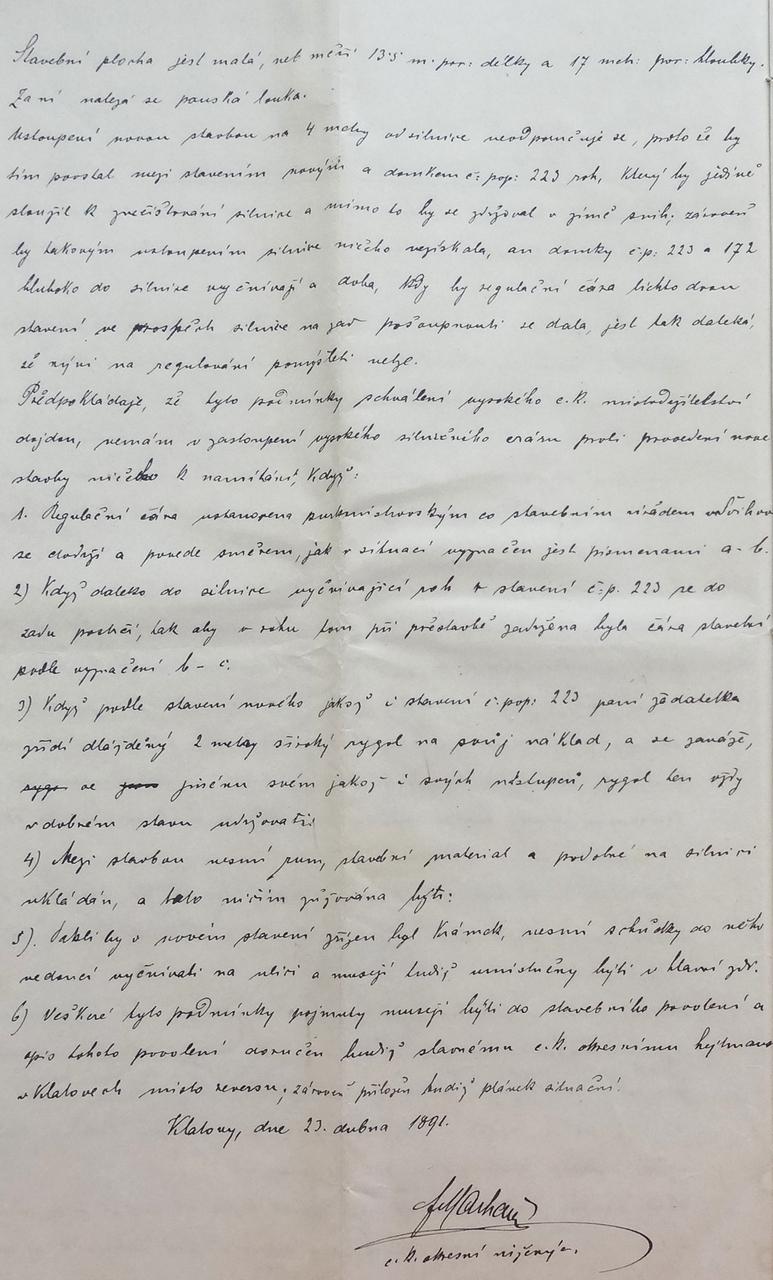 Stavební plocha jest malá, neb měří 13·5 m. por: délky a 17 met: por: hloubky.
Za ní nalezá se panská louka.
Ustoupení novou stavbou na 4 metry od silnice neodporučuje se, proto že by
tím povstal mezi stavením novým a domkem č: pop: 223 roh, který by jedině
sloužil k znečišťování silnice a mimo to by se zdržoval v zimě sníh; zároveň
by takovým ustoupením silnice ničeho nezískala, an domky č.p: 223 a 172
hluboko do silnice vyčnívají a doba, kdy by regulační čára těchto dvou
stavení ve prospěch silnice na zad pošoupnouti se dala, jest tak daleká,
že nyní na regulování pomýšleti nelze.
Předpokládaje, že tyto podmínky schválení vysokého c.k. místodržitelství
dojdou, nemám v zastoupení vysokého silničního eráru proti provedení nové
stavby ničeho k namítání, když:
1. Regulační čára ustanovena purkmistrovským co stavebním úřadem
se dodrží a povede směrem, jak v situaci vyznačen jest písmenami a - b.
2) Když daleko do silnice vyčnívající roh stavení č.p. 223 se do
zadu postrčí, tak aby v rohu tom při přestavbě zadržena byla čára stavební
podle vyznačení b - c.
3) Když podle stavení nového jakož i stavení č. pop: 223 paní žadatelka
zřídí dlážděný 2 metry široký rygol na svůj náklad, a se zaváže,
ve jménu svém jakož i svých nástupců, rygol ten vždy
v dobrém stavu udržovati.
4) Mezi stavbou nesmí rum, stavební material a podobné na silnici
ukládán, a tato ničím zúžována býti:
5). Pakli by v novém stavení zřízen byl krámek, nesmí schůdky do něho
vedoucí vyčnívati na ulici a musejí tudíž umístněny býti v hlavní zdi.
6) Veškeré tyto podmínky pojmuty musejí býti do stavebního povolení a
opis tohoto povolení doručen budiž slavnému c.k. okresnímu hejtmanu
v Klatovech místo reversu; zároveň přiložen budiž plánek situační.
Klatovy, dne 23. dubna 1891.
c.k. okresní inženýr.